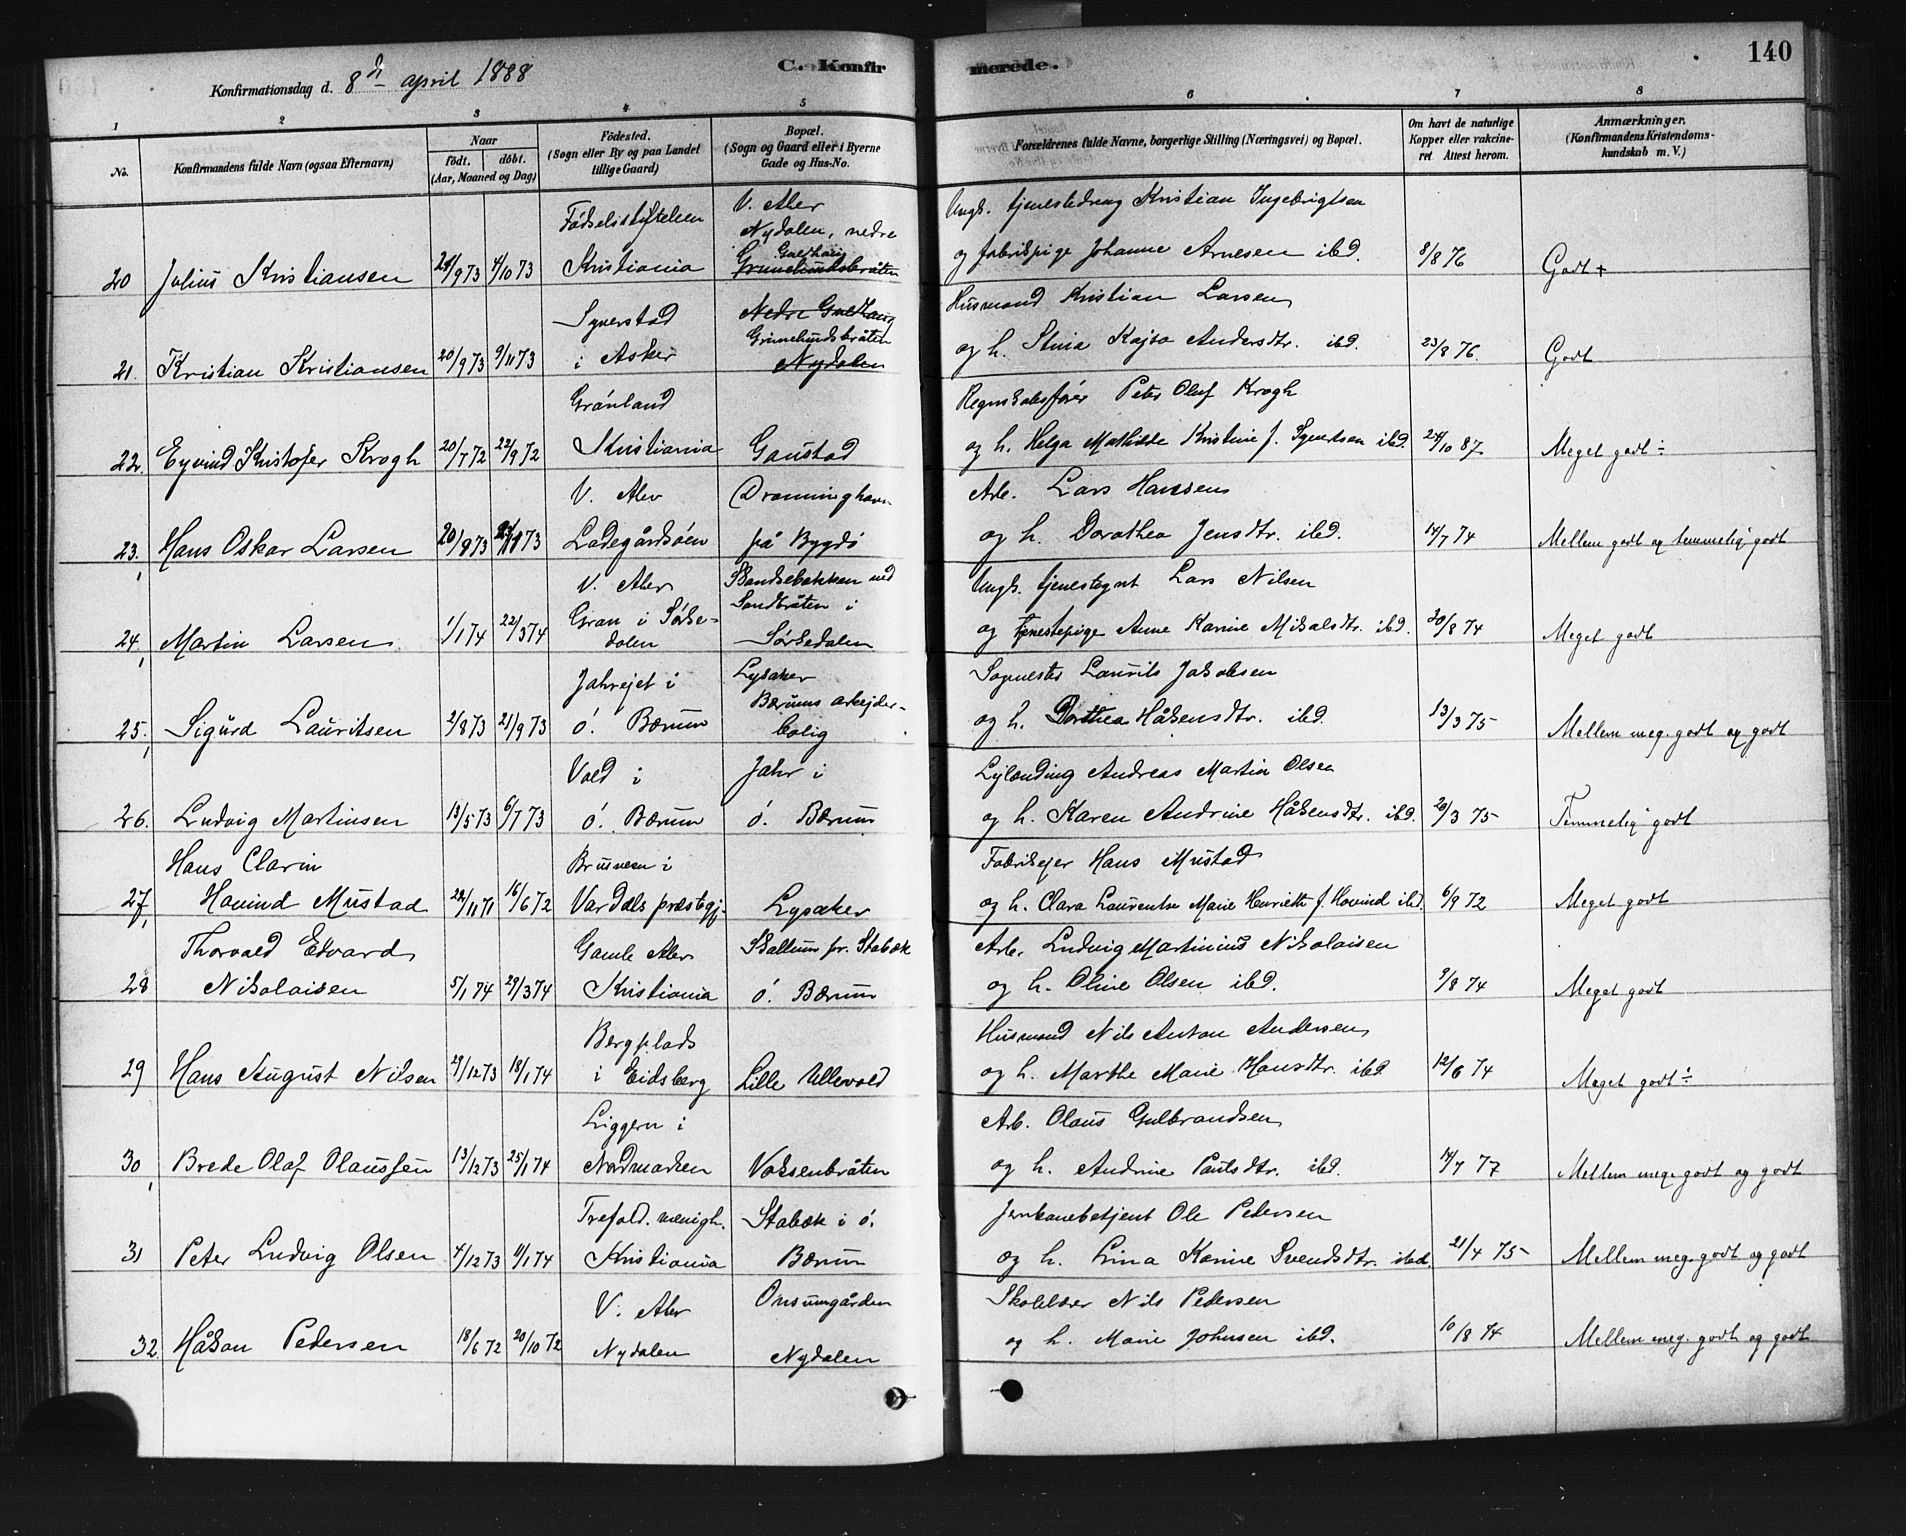 140
Konfirmationsdag d. 8de april 1888
C. Konfirmerede.
1 2 3 4 5 6 7 8
No.
Konfirmandens fulde Navn (ogsaa Efternavn)
Naar
födt. döbt.
(Aar, Maaned og Dag)
Födested.
(Sogn eller By og paa Landet
tillige Gaard)
Bopæl.
(Sogn og Gaard eller i Byerne
Gade og Hus-No.
Forældrenes fulde Navne, borgerlige Stilling (Næringsvei) og Bopæl.
Om havt de naturlige
Kopper eller vakcine-
ret Attest herom.
Anmærkninger.
(Konfirmandens Kristendoms-
kundskab m. V.)
Fødselsstiftelsen V. Aker Ungk. tjenestedreng Kristian Ingebrigtsen
Nydalen, nedre
Gulhaug
20 Julius Kristiansen 24/9 73 4/10 73 Kristiania Grimelundsbråten og fabrikpige Johanne Arnesen ibd. 8/8 76 Godt +
Syverstad Nedre Gulhaug Husmand Kristian Larsen
Grimelundsbråten
21. Kristian Kristiansen 20/9 73 9/11 73 i Asker Nydalen og h. Stina Kajsa Andersdtr. ibd. 23/8 76. Godt
Grønland Regnskabsfører Peter Oluf Krogh
22. Eyvind Kristofer Krogh 20/7 72 22/9 72 Kristiania Gaustad og h. Helga Mathilde Kristine f. Syvertsen ibd. 24/10 87. Meget godt ÷
V. Aker Dronninghavn Arb. Lars Hansen
23. Hans Oskar Larsen 20/9 73 73 Ladegårdsøen på Bygdø og h. Dorothea Jensdtr. ibd. 14/7 74 Mellem godt og temmelig godt
V. Aker Skandsebakken ved Ungk. tjenestegut Lars Nilsen
Gran i Sørke- Sandbråten i
24. Martin Larsen 1/1 74 22/3 74 dalen Sørkedalen og tjenestepige Anne Karine Mikalsdtr. ibd. 30/8 74 Meget godt
Jahrejet i Lysaker Laurits Jakobsen
Bærums arbejder-
25. Sigurd Lauritsen 2/8 73 21/9 73 ø. Bærum bolig og h. Dorthea Håkensdtr. ibd. 13/3 75 Mellem meg. godt og godt
Vold i Jahr i Andreas Martin Olsen
26. Ludvig Martinsen 13/5 73 6/7 73 ø. Bærum ø. Bærum og h. Karen Andrine Håkensdtr. ibd. 20/3 75 Temmelig godt
Hans Clarin Brusveen i Fabrikejer Hans Mustad
27. Hovind Mustad 22/11 71 16/6 72 Vardals præstegj. Lysaker og h. Clara Laurentse Marie Henriette f. Hovind ibd. 6/9 72 Meget godt
Thorvald Edvard Gamle Aker Skallum pr. Stabæk Arb. Ludvig Martinius Nikolaisen
28 Nikolaisen 5/1 74 29/3 74 Kristiania ø. Bærum og h. Oline Olsen ibd. 9/8 74 Meget godt
Bergplads Husmand Nils Anton Andersen
29 Hans August Nilsen 29/12 73 18/1 74 i Eidsberg Lille Ullevold og h. Marthe Marie Hansdtr. ibd 12/6 74 Meget godt ÷
Liggern i Arb. Olaus Gulbrandsen
30 Brede Olaf Olaussen 13/12 73 25/1 74 Nordmarken Voksenbråten og h. Andrine Paulsdtr. ibd. 14/7 77 Mellem meg. godt og godt
Trefold. menigh. Stabæk i ø. Jernbanebetjent Ole Pedersen
31 Peter Ludvig Olsen 4/12 73 11/1 74 Kristiania Bærum og h. Lina Karine Svendsdtr. ibd. 21/4 75 Mellem meg. godt og godt
V. Aker Onsumgården Nils Pedersen
32. Håkon Pedersen 18/6 72 20/10 72 Nydalen Nydalen og h. Marie Johnsen ibd. 10/8 74 Mellem meg. godt og godt